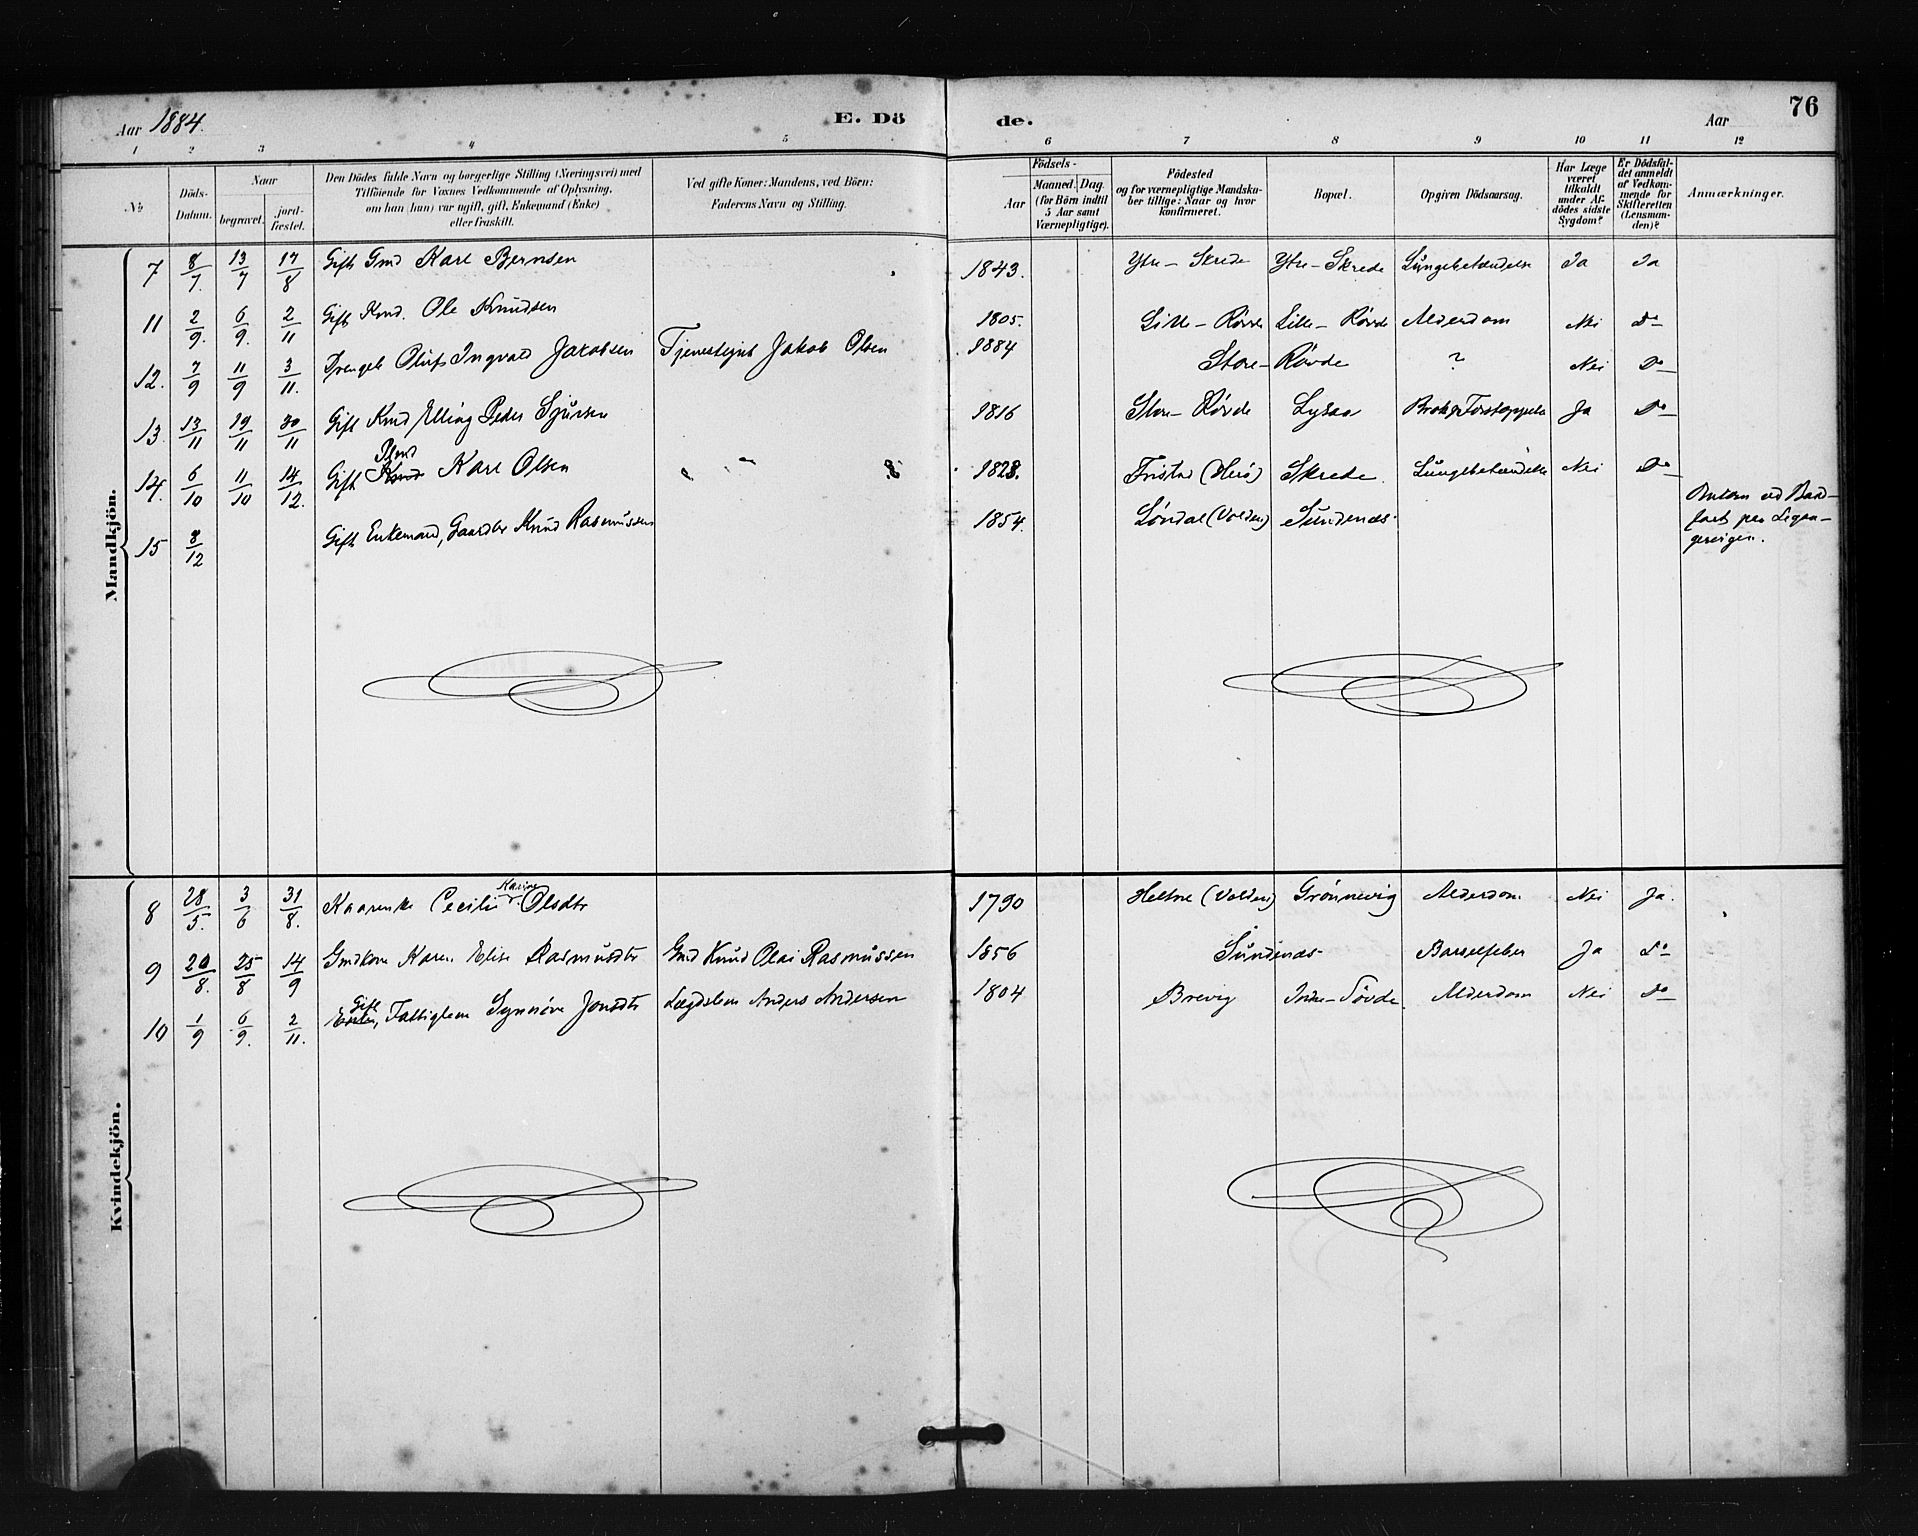 Aar 1884.
E. Dö de.
Aar
76
1 2 3 4 5 6 7 8 9 10 11 12
№
Döds-Datum.
Naar
begravet.
jord-fæstet.
Den Dödes fulde Navn og borgerlige Stilling (Næringsvei) med
Tilföiende for Voxnes Vedkommende af Oplysning,
om han (hun) var ugift, gift, Enkemand (Enke)
eller fraskilt.
Ved gifte Koner: Mandens, ved Börn:
Faderens Navn og Stilling.
Födsels-
Aar
Maaned. Dag.
(for Börn indtil
5 Aar samt
Værnepligtige).
Födested
og for værnepligtige Mandska-
ber tillige: Naar og hvor
konfirmeret.
Bopæl.
Opgiven Dödsaarsag.
Har Læge
været
tilkaldt
under Af-
dödes sidste
Sygdom?
Er Dödsfal-
det anmeldt
af Vedkom-
mende for
Skifteretten
(Lensman-
den)?
Anmærkninger.
Mandkjön.
7 8/7. 13/7 17/8 Gift Gmd Karl Berntsen 1843. Ytre-Skrede Ytre-Skrede Lungebetændelse Ja Ja
11 2/9. 6/9. 2/11 Gift Kmd. Ole Knudsen 1805. Lille-Rövde Lille-Rövde Alderdom Nei Do
12. 7/9 11/9 3/11. Drengeb Oluf Ingvald Jacobsen Tjenestegut Jakob Olsen 1884 Store-Rövde ? Nei Do
13. 13/11 19/11 30/11 Gift Kmd Elling Peder Sjursen 1816 Store-Rövde Ja Do
14. 6/10 11/10 14/12. Gift Karl Olsen 1828. (Herö) Skrede Lungebetændelse Nei Do
15 8/12 Gift Enkemand, Gaardbr Knud Rasmussen 1854. Løndal (Volden) Sundenæs. Omkom ved Baad-
fart paa Legan-
gervigen.
Kvindekjön.
8 28/5. 3/6 31/8. Cecilie Karine Olsdtr 1790 Heltne (Volden) Grönnevig Alderdom Nei Ja.
9 20/8. 25/8 14/9 Gmdkone Karen Elise Rasmusdtr Gmd Knud Olai Rasmussen 1856 Sundenæs. Barselfeber Ja Do
10 1/9 6/9. 2/11. Gift Fattiglem Synnöve Jonsdtr Lægdslem Anders Andersen 1804 Brevig Indre-Sövde. Alderdom Nei Do